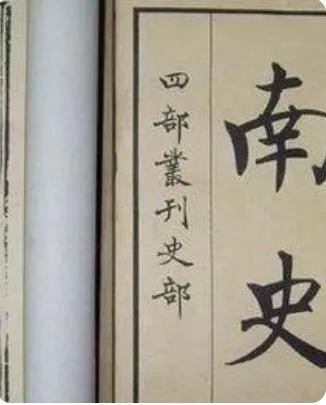 南史
四部叢刊史部